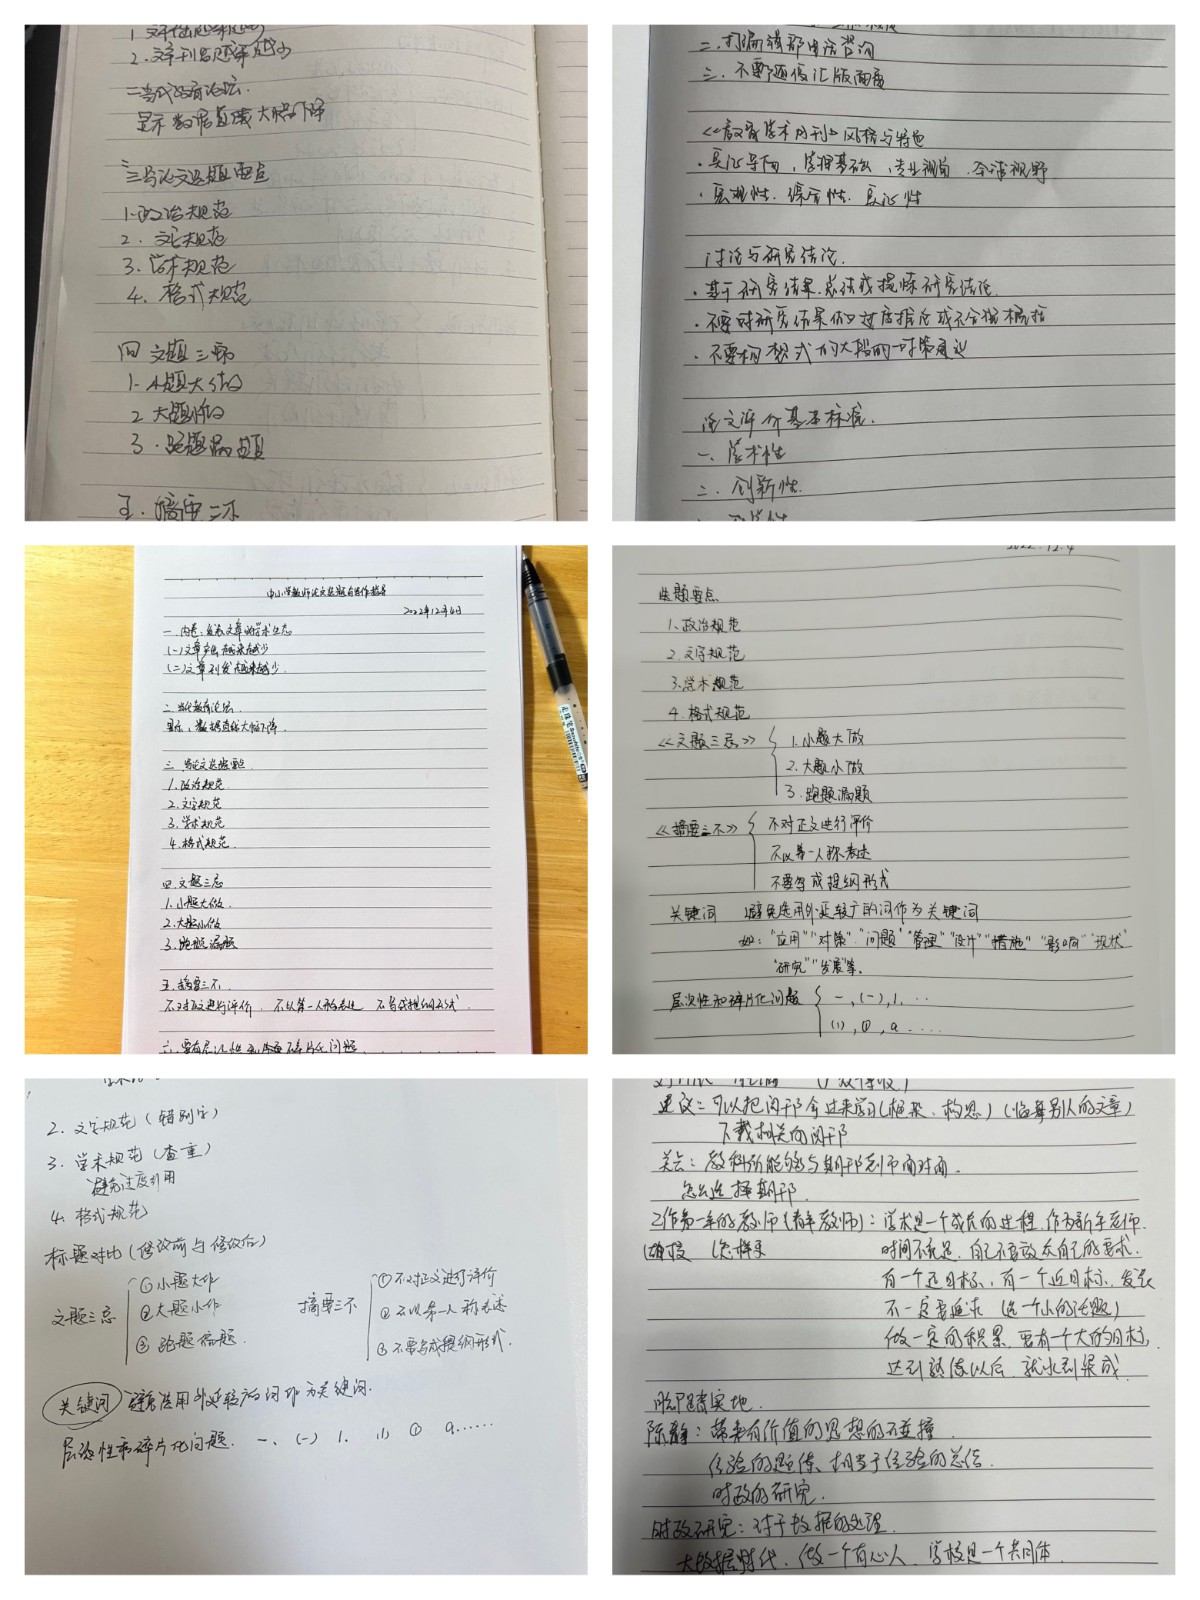 2.文章刊发越来越少
二当代教育论坛.
显示 数据直线大幅下降
三写论文选题要点
1.政治规范
2.文字规范
3.学术规范
4.格式规范
四 文题三忌
1.小题大做
2 大题小做
3.跑题漏题
五.摘要三不
二.打编辑部电话咨询
三.不要随便汇版面费
《教育学术月刊》风格与特色
·实证导向,学理基础,专业视角.全球视野
·宏观性.综合性.实证性
讨论与研究结论.
·基于研究结果.总结或提炼研究结论.
·不要对研究结果做过度推论或不合理概括
·不要构想式的大段的对策建议
论文评价基本标准.
一.学术性
二.创新性.
中小学教师论文选题与写作指导
2022年12月4日
一.内卷:发表文章的学术生态
(一)文章产出越来越少
(二)文章刊发越来越少.
二.当代教育论坛.
显示:数据直线大幅下降.
三.写论文选题要点.
1.政治规范
2.文字规范
3.学术规范
4.格式规范.
四.文题三忌
1.小题大做.
2.大题小做
3.跑题漏题
五.摘要三不.
不对正文进行评价.不以第一人称表述 不写成提纲形式.
2022.12.4
选题要点
1.政治规范
2.文字规范
3.学术规范
4.格式规范
《文题三忌》
1.小题大做
2.大题小做
3.跑题漏题
《摘要三不》
不对正文进行评价
不以第一人称表述
不要写成提纲形式
关键词 避免选用外延较广的词作为关键词
如:"应用""对策""问题""管理""设计""措施""影响""现状"
"研究""发展"等.
层次性和碎片化问题
一,(一),1,...
(1),①,a.....
2.文字规范(错别字)
3.学术规范(查重)
避免过度引用
4.格式规范
标题对比(修改前与修改后)
文题三忌
①小题大作
②大题小作
③跑题漏题.
摘要三不
①不对正文进行评价
②不以第一人称表述
③不要写成提纲形式.
关键词 避免选用外延较广的词作为关键词.
层次性和碎片化问题.一、(一) 1. (1) ① a......
建议:可以把期刊拿过来学习(框架、构思)(临摹别人的文章)
下载相关的期刊
关云:教科所能够与期刊老师面对面.
怎么选择期刊.
工作第一年的教师(青年教师):学术是一个成长的过程.作为新手老师.
时间不充足.自己不要放松自己的要求.
有一个远目标,有一个近目标.发表
不一定要追求(选一个小的话题)
做一定的积累.要有一个大的目标,
达到积淀以后.就水到渠成.
脚踏实地.
陈静:带来有价值的思想的碰撞.
经验的题体、相当于经验的总结.
时政的研究.
时政研究:对于数据的处理.
大数据时代.做一个有心人.学校是一个共同体.